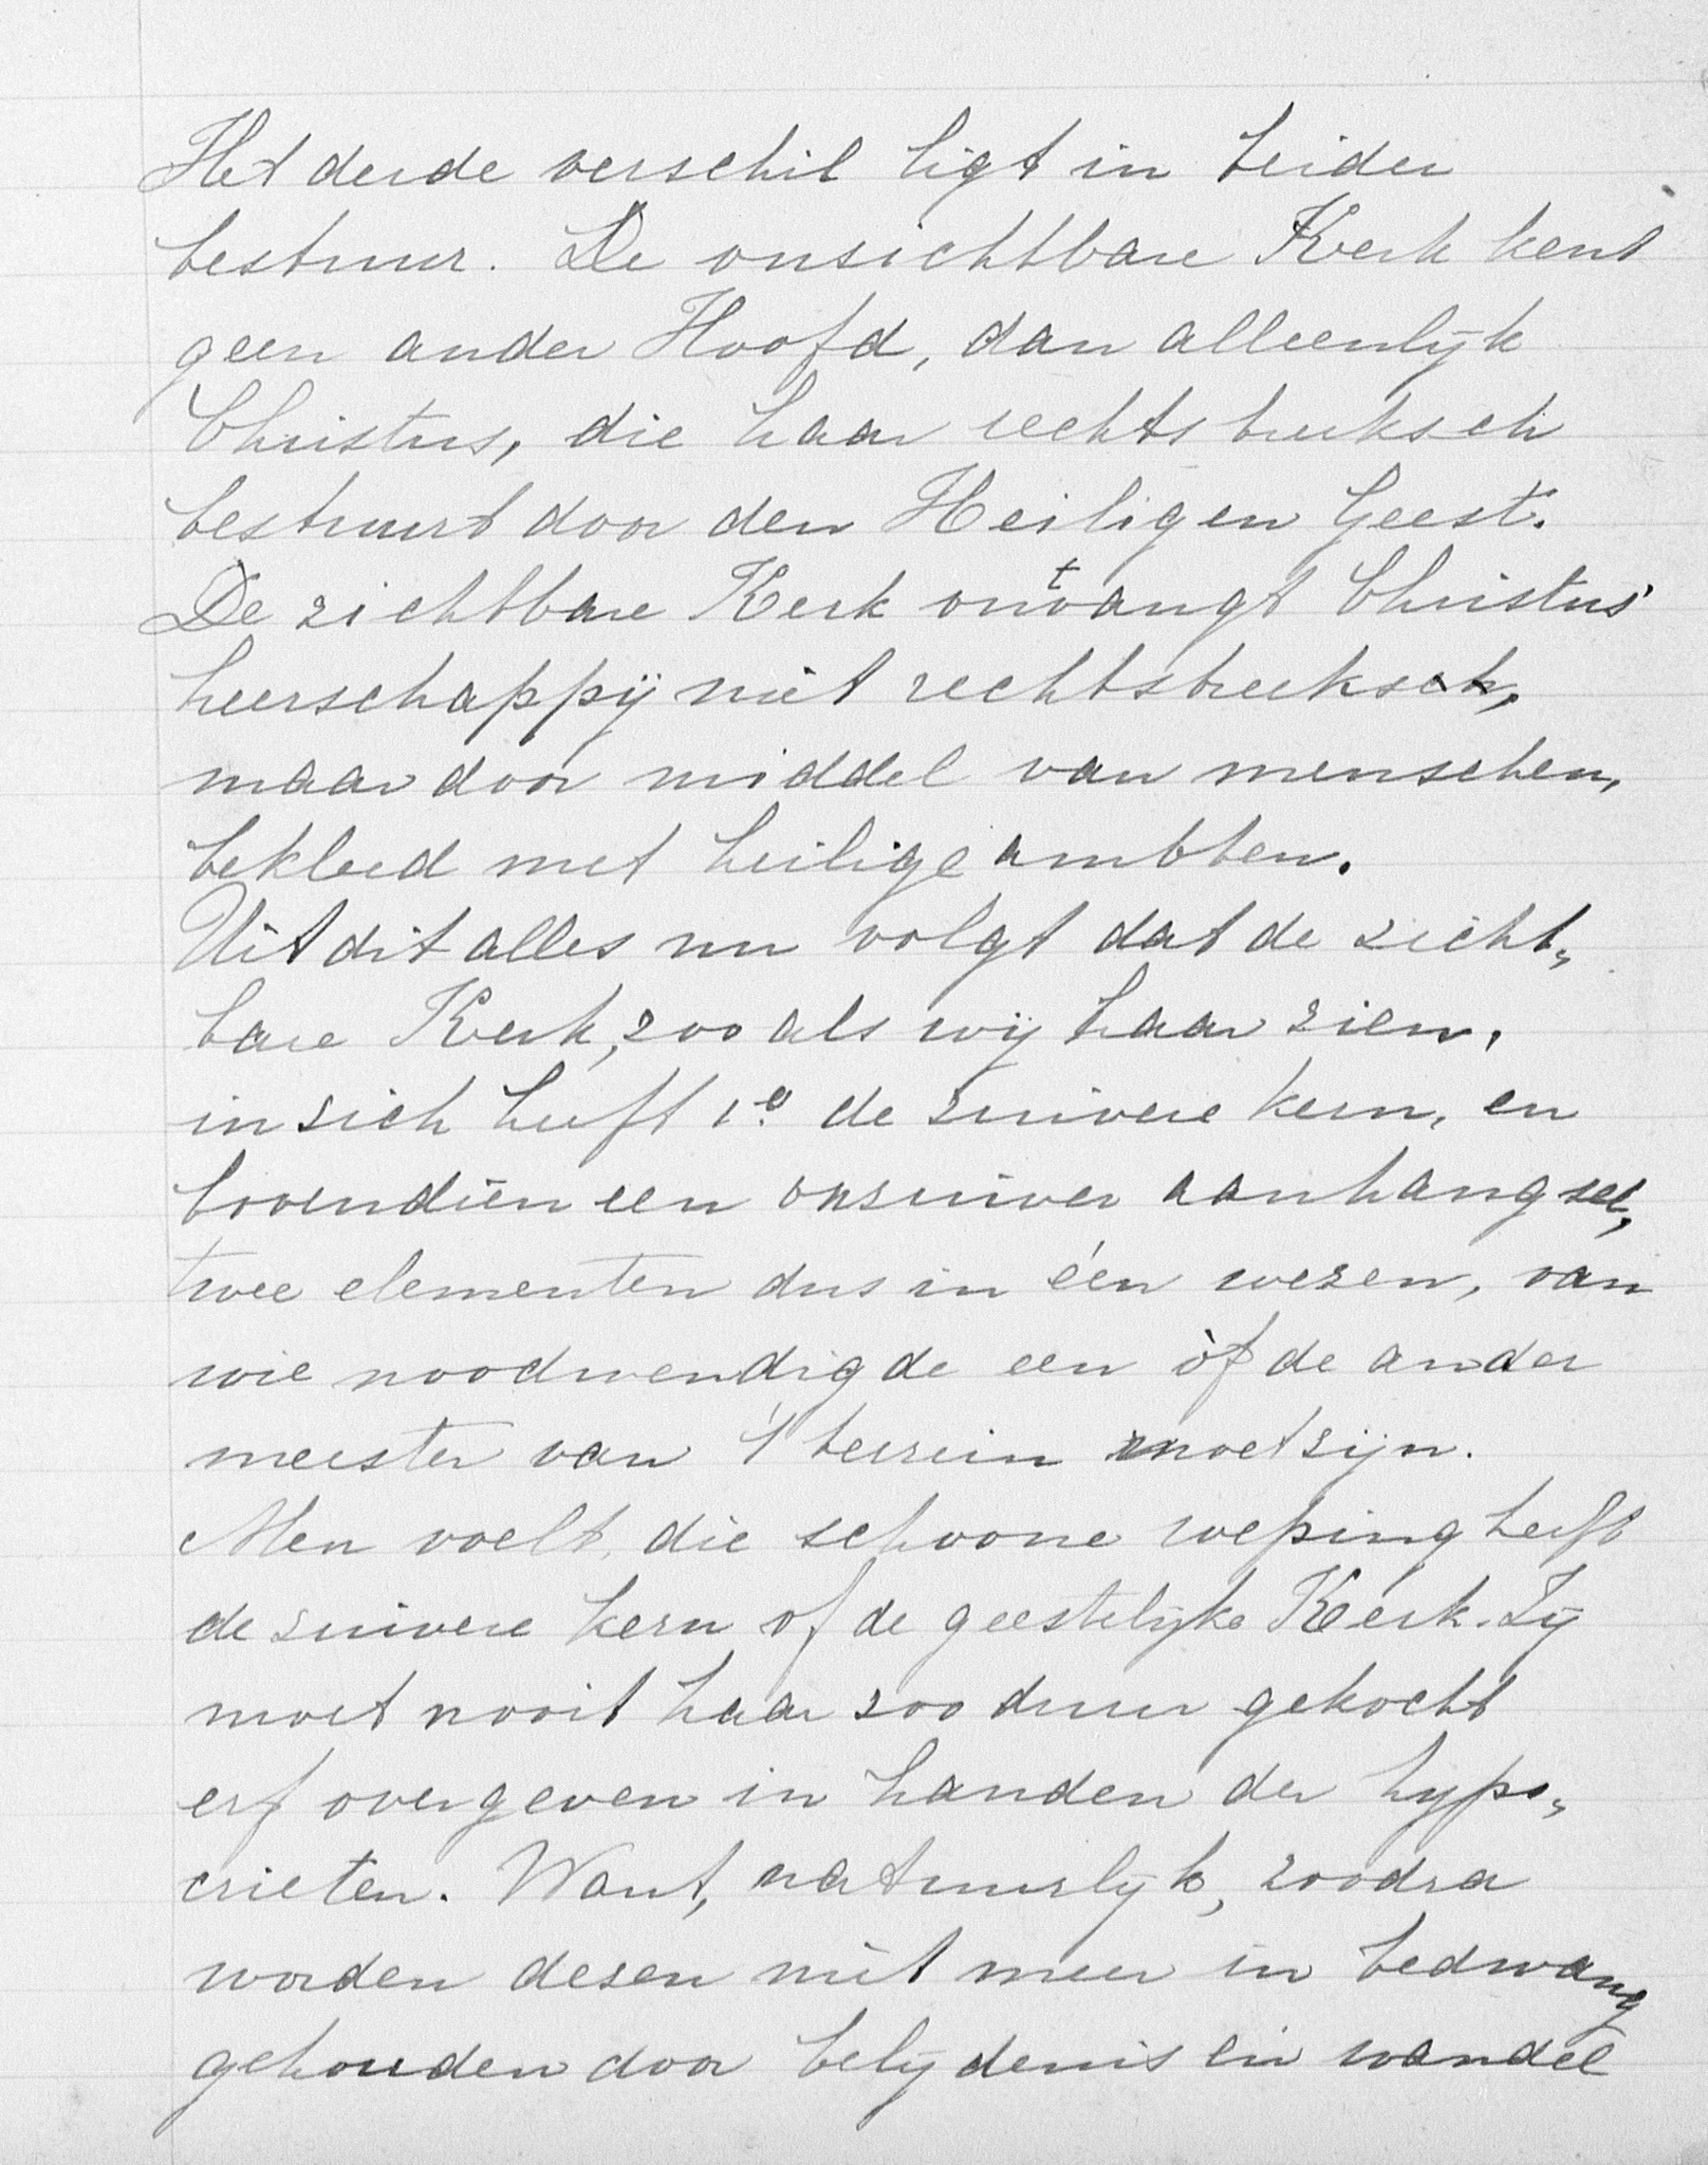 Het derde verschil ligt in beider
bestuur. De onzichtbare Kerk kent
geen ander Hoofd, dan alleenlijk
Christus, die haar rechtsbreeksch
bestuurt door den Heiligen Geest.
De zichtbare Kerk ontvangt Christus'
heerschappij niet rechtstreeksch,
maar door middel van menschen,
bekleed met heilige ambten.
Uit dit alles nu volgt dat de zicht„
bare Kerk, zooals wij haar zien,
in zich heeft 1º de zuivere kern, en
bovendien een onzuiver aanhangsel,
twee elementen dus in één wezen, van
wie noodwendig de een òf de ander
meester van 't terrein moet zijn.
Men voelt, die schoone roeping heeft
de zuivere kern of de geestelijke Kerk. Zij
moet nooit haar zoo duur gekocht
erf overgeven in handen der hypo„
crieten. Want, natuurlijk, zoodra
worden dezen niet meer in bedwang
gehouden door belijdenis en wandel